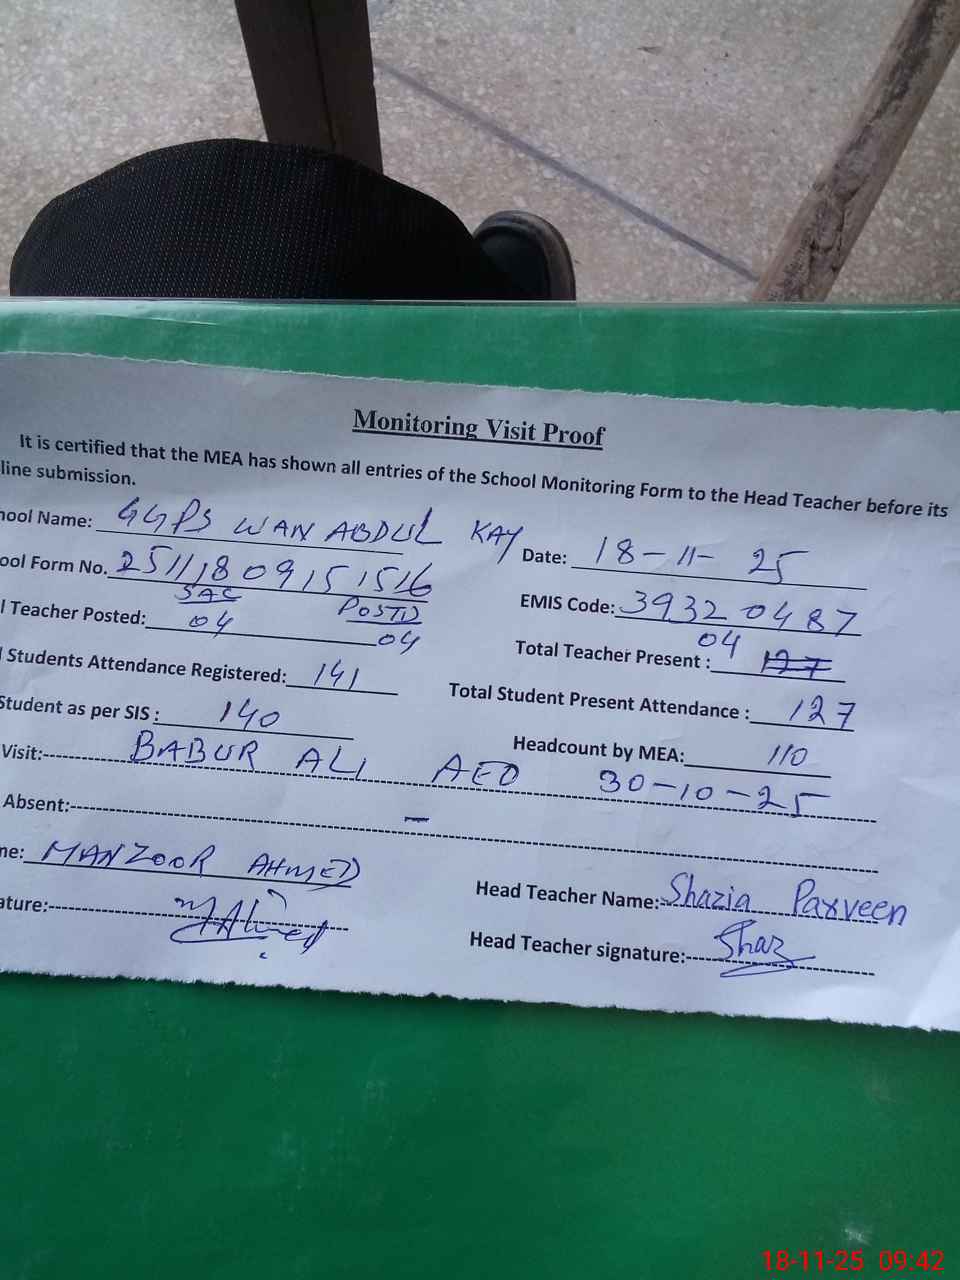 Monitoring Visit Proof
It is certified that the MEA has shown all entries of the School Monitoring Form to the Head Teacher before its
line submission.
hool Name: GGPS WAN ABDUL KAY
Date: 18-11-25
ool Form No. 25111809151516
EMIS Code: 39320487
SAC POSTD
l Teacher Posted: 04 04
Total Teacher Present: 04 127
l Students Attendance Registered: 141
Total Student Present Attendance: 127
Student as per SIS: 140
Headcount by MEA: 110
Visit: BABUR ALI AEO 30-10-25
Absent: -
me: MANZOOR AHMED
Head Teacher Name: Shazia Parveen
ature: MAhmed
Head Teacher signature: Shaz
18-11-25 09:42